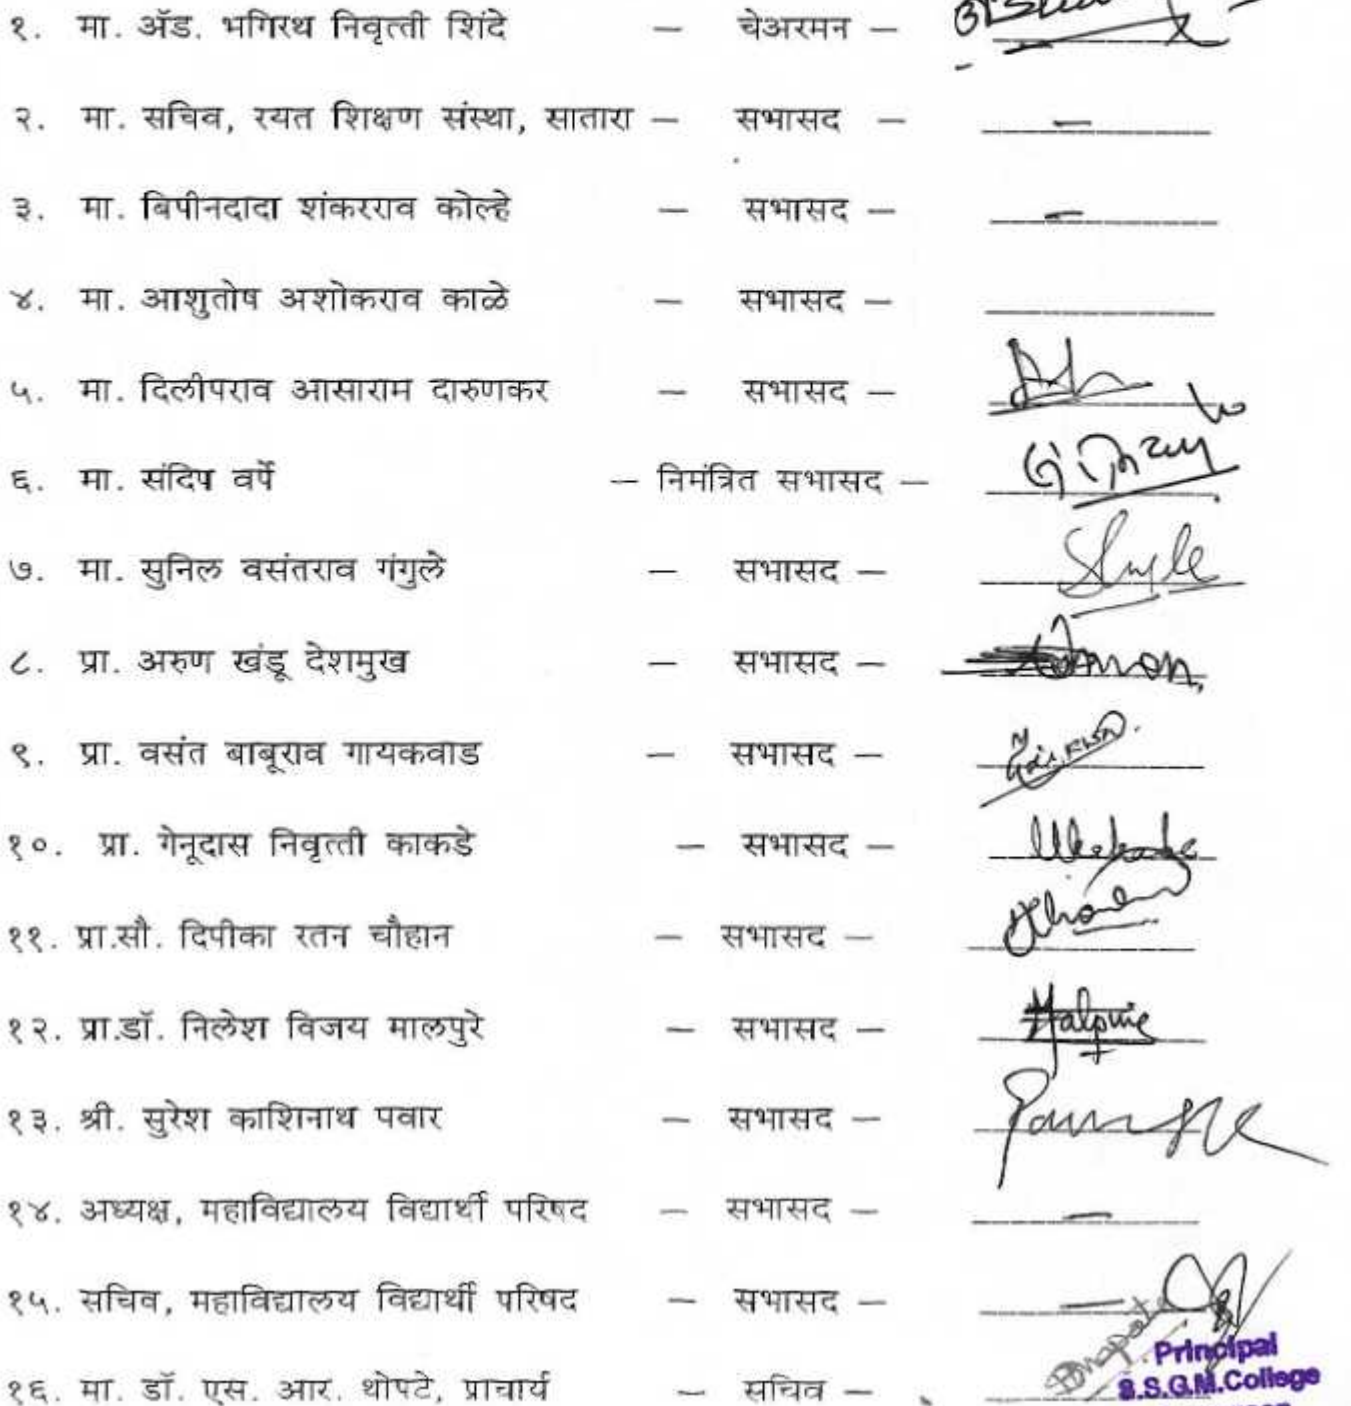 १. मा. ॲड. भगिरथ निवृत्ती शिंदे – चेअरमन –
२. मा. सचिव, रयत शिक्षण संस्था, सातारा – सभासद –
३. मा. बिपीनदादा शंकरराव कोल्हे – सभासद –
४. मा. आशुतोष अशोकराव काळे – सभासद –
५. मा. दिलीपराव आसाराम दारुणकर – सभासद –
६. मा. संदिप वर्पे – निमंत्रित सभासद –
७. मा. सुनिल वसंतराव गंगुले – सभासद –
८. प्रा. अरुण खंडू देशमुख – सभासद –
९. प्रा. वसंत बाबूराव गायकवाड – सभासद –
१०. प्रा. गेनूदास निवृत्ती काकडे – सभासद –
११. प्रा.सौ. दिपीका रतन चौहान – सभासद –
१२. प्रा.डॉ. निलेश विजय मालपुरे – सभासद – Malpure
१३. श्री. सुरेश काशिनाथ पवार – सभासद –
१४. अध्यक्ष, महाविद्यालय विद्यार्थी परिषद – सभासद –
१५. सचिव, महाविद्यालय विद्यार्थी परिषद – सभासद –
१६. मा. डॉ. एस. आर. थोपटे, प्राचार्य – सचिव –
Principal
S.S.G.M.College